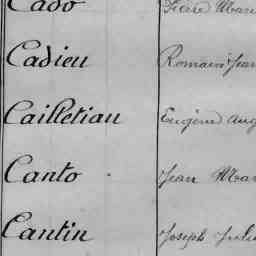 Cado Pierre Mari
Cadieu Romain Jean
Cailletiau Eugène Aug
Canto Jean Mar
Cantin Joseph Juli